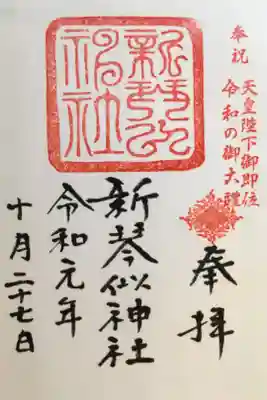 奉祝
天皇陛下御即位
令和の御大礼
奉拝
新琴似神社
新琴似神社
令和元年
十月二十七日